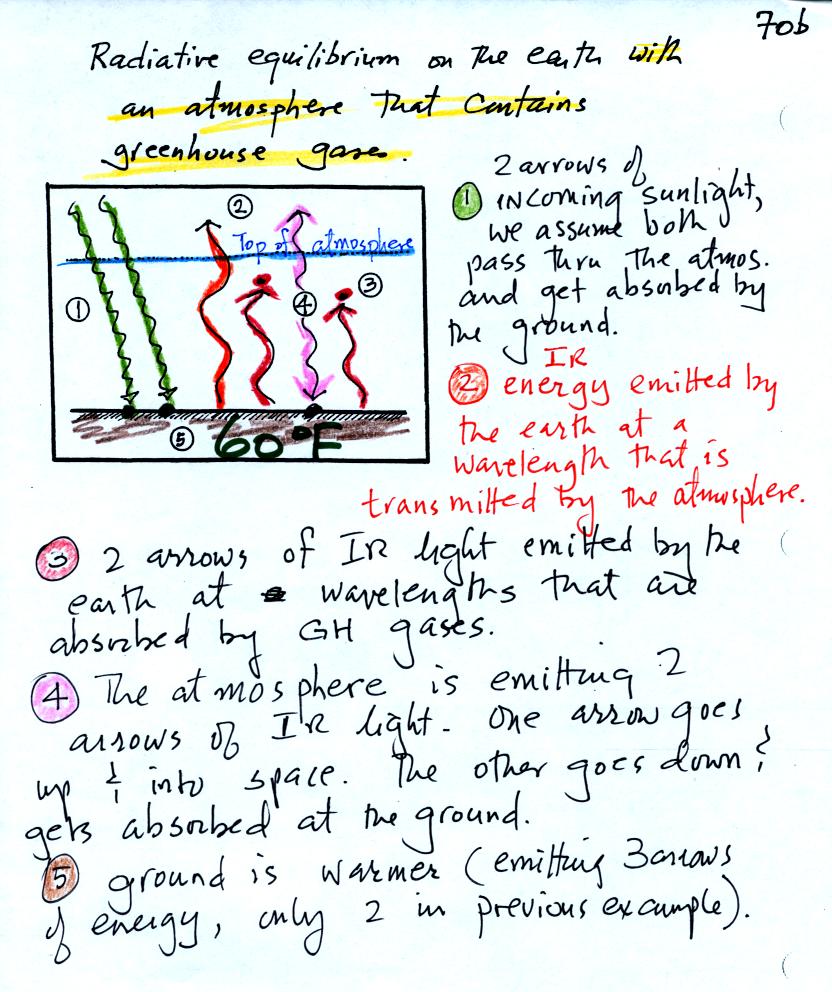 70b
Radiative equilibrium on the earth with
an atmosphere that contains
greenhouse gases.
②
Top of atmosphere
①
④
③
⑤
60°F
2 arrows of
① incoming sunlight,
we assume both
pass thru the atmos.
and get absorbed by
the ground.
IR
② energy emitted by
the earth at a
wavelength that is
transmitted by the atmosphere.
③ 2 arrows of IR light emitted by the
earth at wavelengths that are
absorbed by GH gases.
④ The atmosphere is emitting 2
arrows of IR light. One arrow goes
up & into space. The other goes down &
gets absorbed at the ground.
⑤ ground is warmer (emitting 3 arrows
of energy, only 2 in previous example).